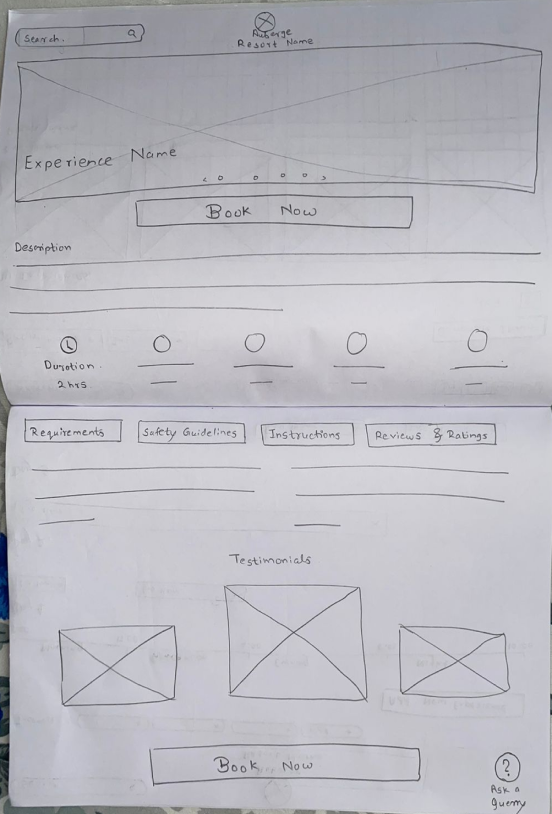 Search.
Auberge
Resort Name
Experience Name
Book Now
Description
Duration.
2 hrs
Requirements
Safety Guidelines
Instructions
Reviews & Ratings
Testimonials
Book Now
?
Ask a
query